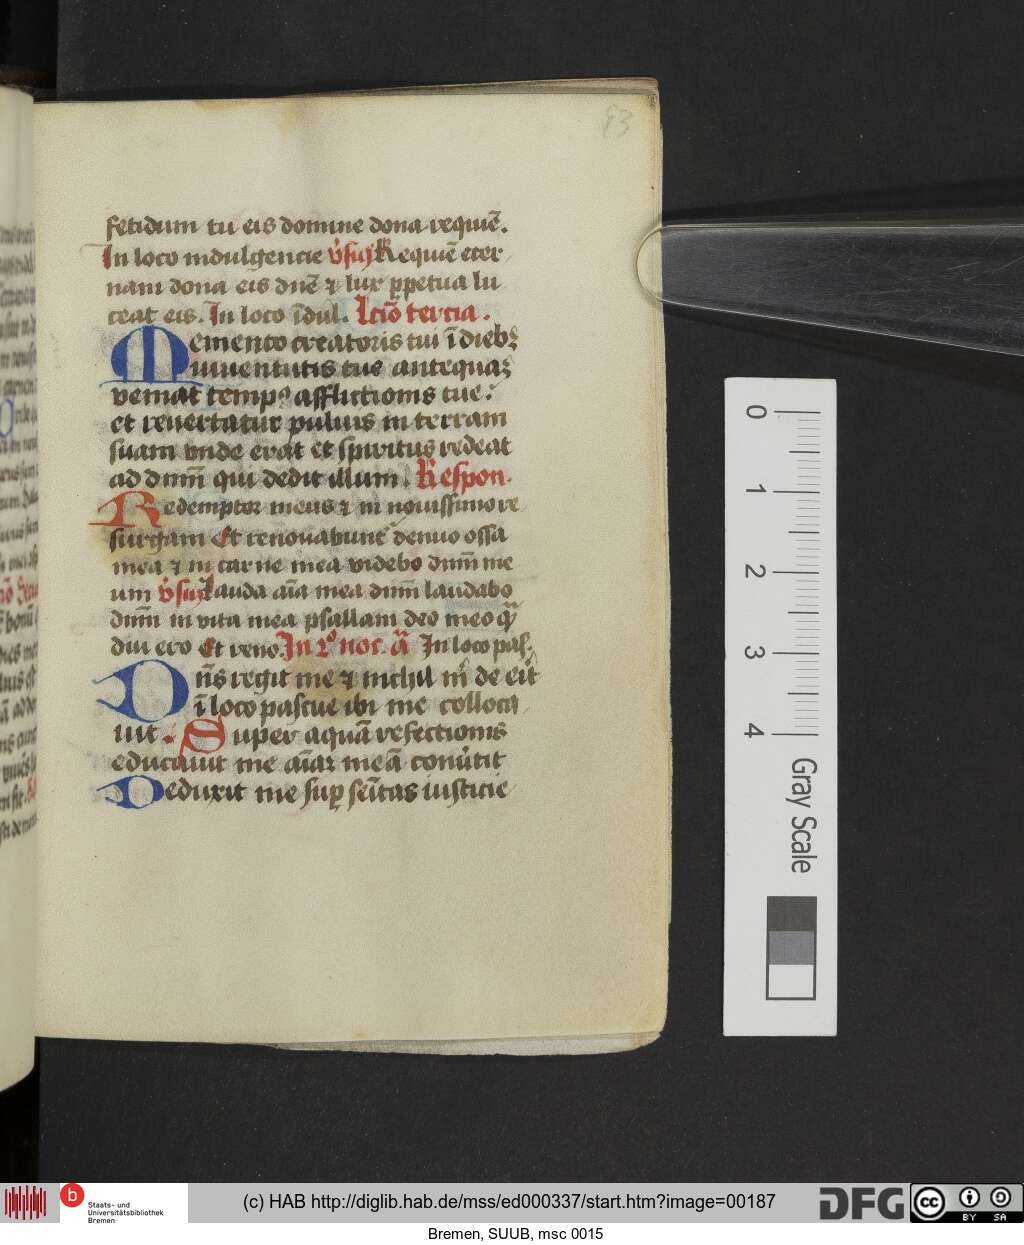 93
fetidum tu eis domine dona requiē.
In loco indulgencie v̄suſ Requiē eter
nam dona eis dn̄e ⁊ lux ꝑpetua lu
ceat eis. In loco īdul. Lc̄io tercia.
Memento creatoris tui ī dieb⁊
iuuentutis tue anteq̄uaꝫ
veniat temp⁹ afflictionis tue:
et reuertatur puluis in terram
suam vnde erat et spiritus redeat
ad dn̄m qui dedit illum. Respon.
Redemptor meus ⁊ in nouissimo re
surgam Et renouabunt denuo ossa
mea ⁊ in carne mea videbo dn̄m me
um v̄suſ Lauda aīa mea dn̄m laudabo
dn̄m in vita mea psallam deo meo q̄
diu ero Et reno. In 2º noc. ā In loco pas.
Dn̄s regit me ⁊ nichil m̄ de eīt
ī loco pascue ibi me colloca
uit. Super aquā refectionis
educauit me aīaꝫ meā conūtit
Deduxit me suꝑ sēitas iusticie
0
1
2
3
4
Gray Scale
b
Staats- und
Universitätsbibliothek
Bremen
(c) HAB http://diglib.hab.de/mss/ed000337/start.htm?image=00187
DFG
cc
BY SA
Bremen, SUUB, msc 0015